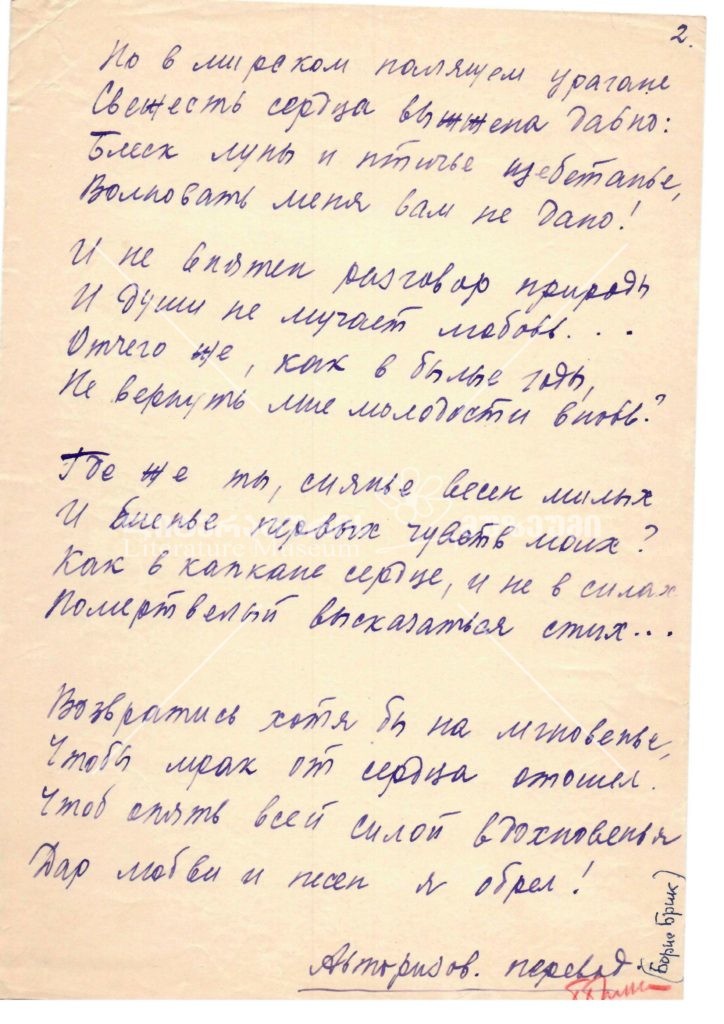 2.
Но в мирском палящем урагане
Свежесть сердца выжжена давно:
Блеск луны и птичье щебетанье,
Волновать меня вам не дано!
И не внятен разговор природы
И души не мучает любовь...
Отчего же, как в былые годы,
Не вернуть мне молодости вновь?
Где же ты, сиянье весен милых
И биенье первых чувств моих?
Как в капкане сердце, и не в силах
Помертвелый высказаться стих...
Возвратись хотя бы на мгновенье,
Чтобы мрак от сердца отошел.
Чтоб опять всей силой вдохновенья
Дар любви и песен я обрел!
Авторизов. перевод
(Борис Брик)
Literature Museum